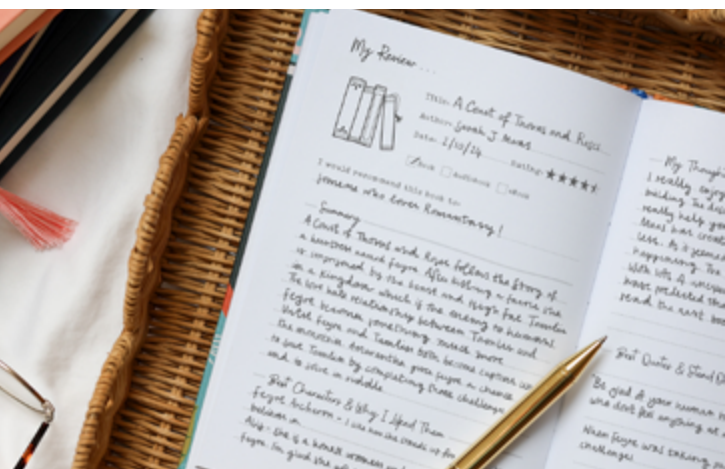 My Review...
Title: A Court of Thorns and Roses
Author: Sarah J. Maas
Date: 2/10/24 Rating: ★★★★
Book Audiobook eBook
I would recommend this book to:
someone who loves Romantasy!
Summary
A Court of Thorns and Roses follows the story of
a huntress named Feyre. After killing a faerie she
is imprisoned by the beast and High Fae Tamlin
in a kingdom which is the enemy to humans.
The love hate relationship between Tamlin and
Feyre becomes something much more
until Feyre and Tamlin both become captives
the Amarantha gives Feyre a chance
to save Tamlin by completing three challenges
and to solve a riddle.
Best Characters & Why I Liked Them
Feyre Archeron - I like how she stands up for
believes in
Alis - she is a
Feyre. I'm glad she
My Thoughts
I really enjoy
building. The
really help
Maas has
less. As it
happening.
with
have predicted
read the next
Best Quotes & Stand
"Be glad of your human
who don't feel anything at
When Feyre was taking
challenges